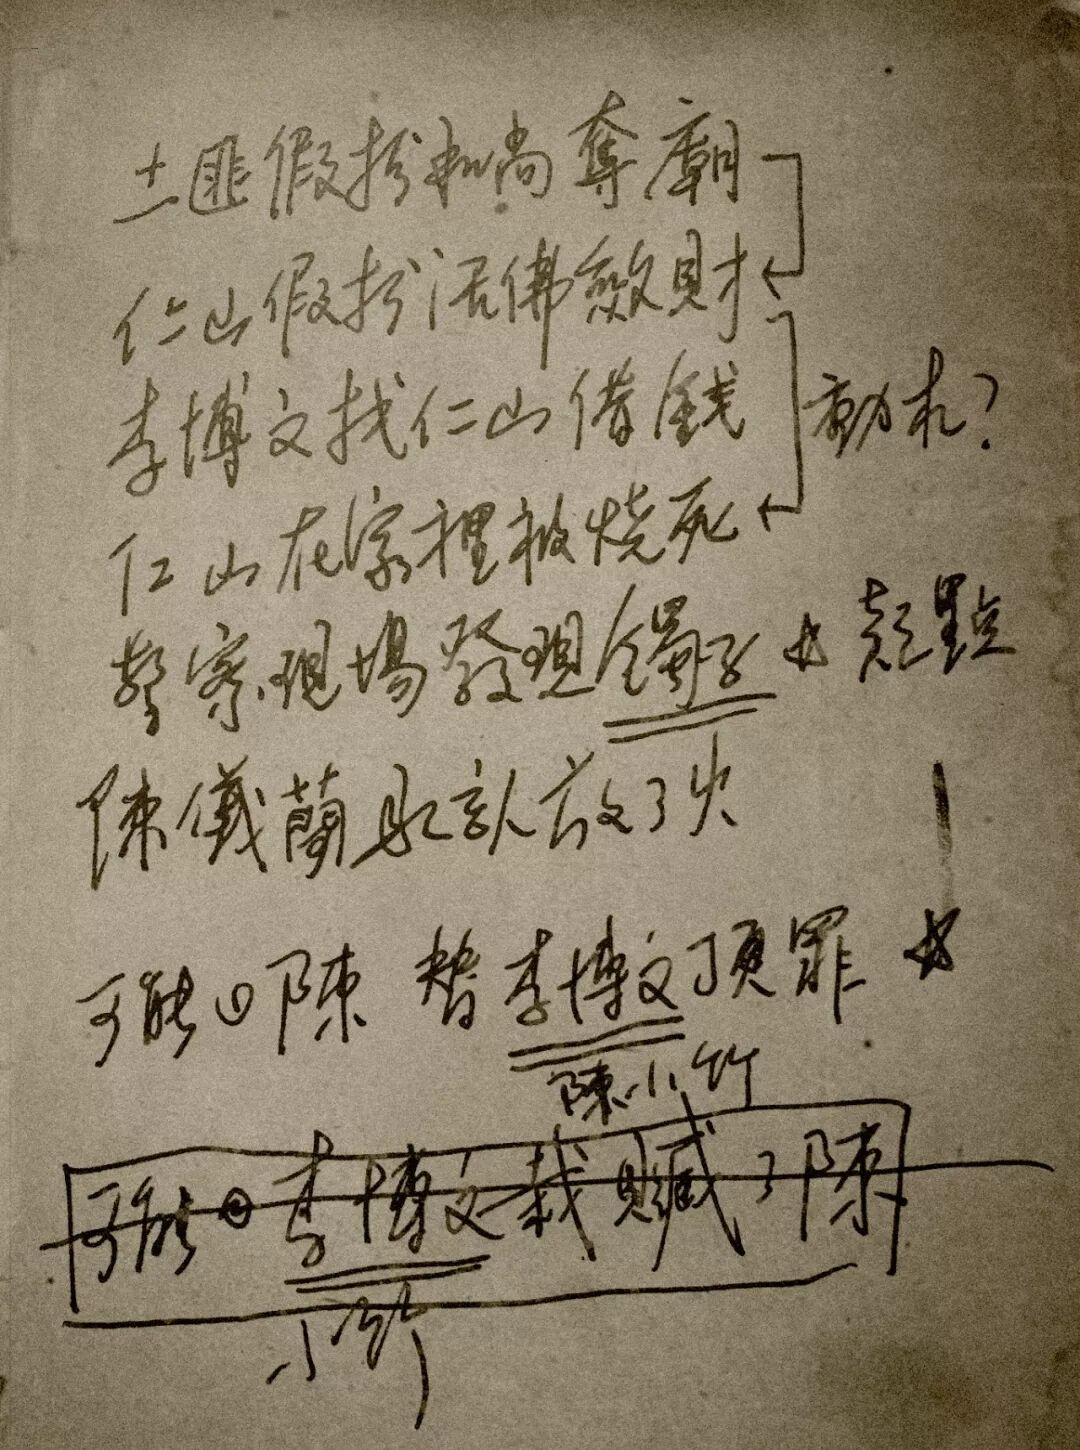 土匪假扮和尚奪廟
仁山假扮活佛斂財
李博文找仁山借錢
動机？
仁山在家裡被燒死
警察現場發現鐲子 疑點
陳儀蘭承認放了火
可能① 陳 替李博文頂罪
陳小竹
可能② 李博文栽贓了陳
小竹